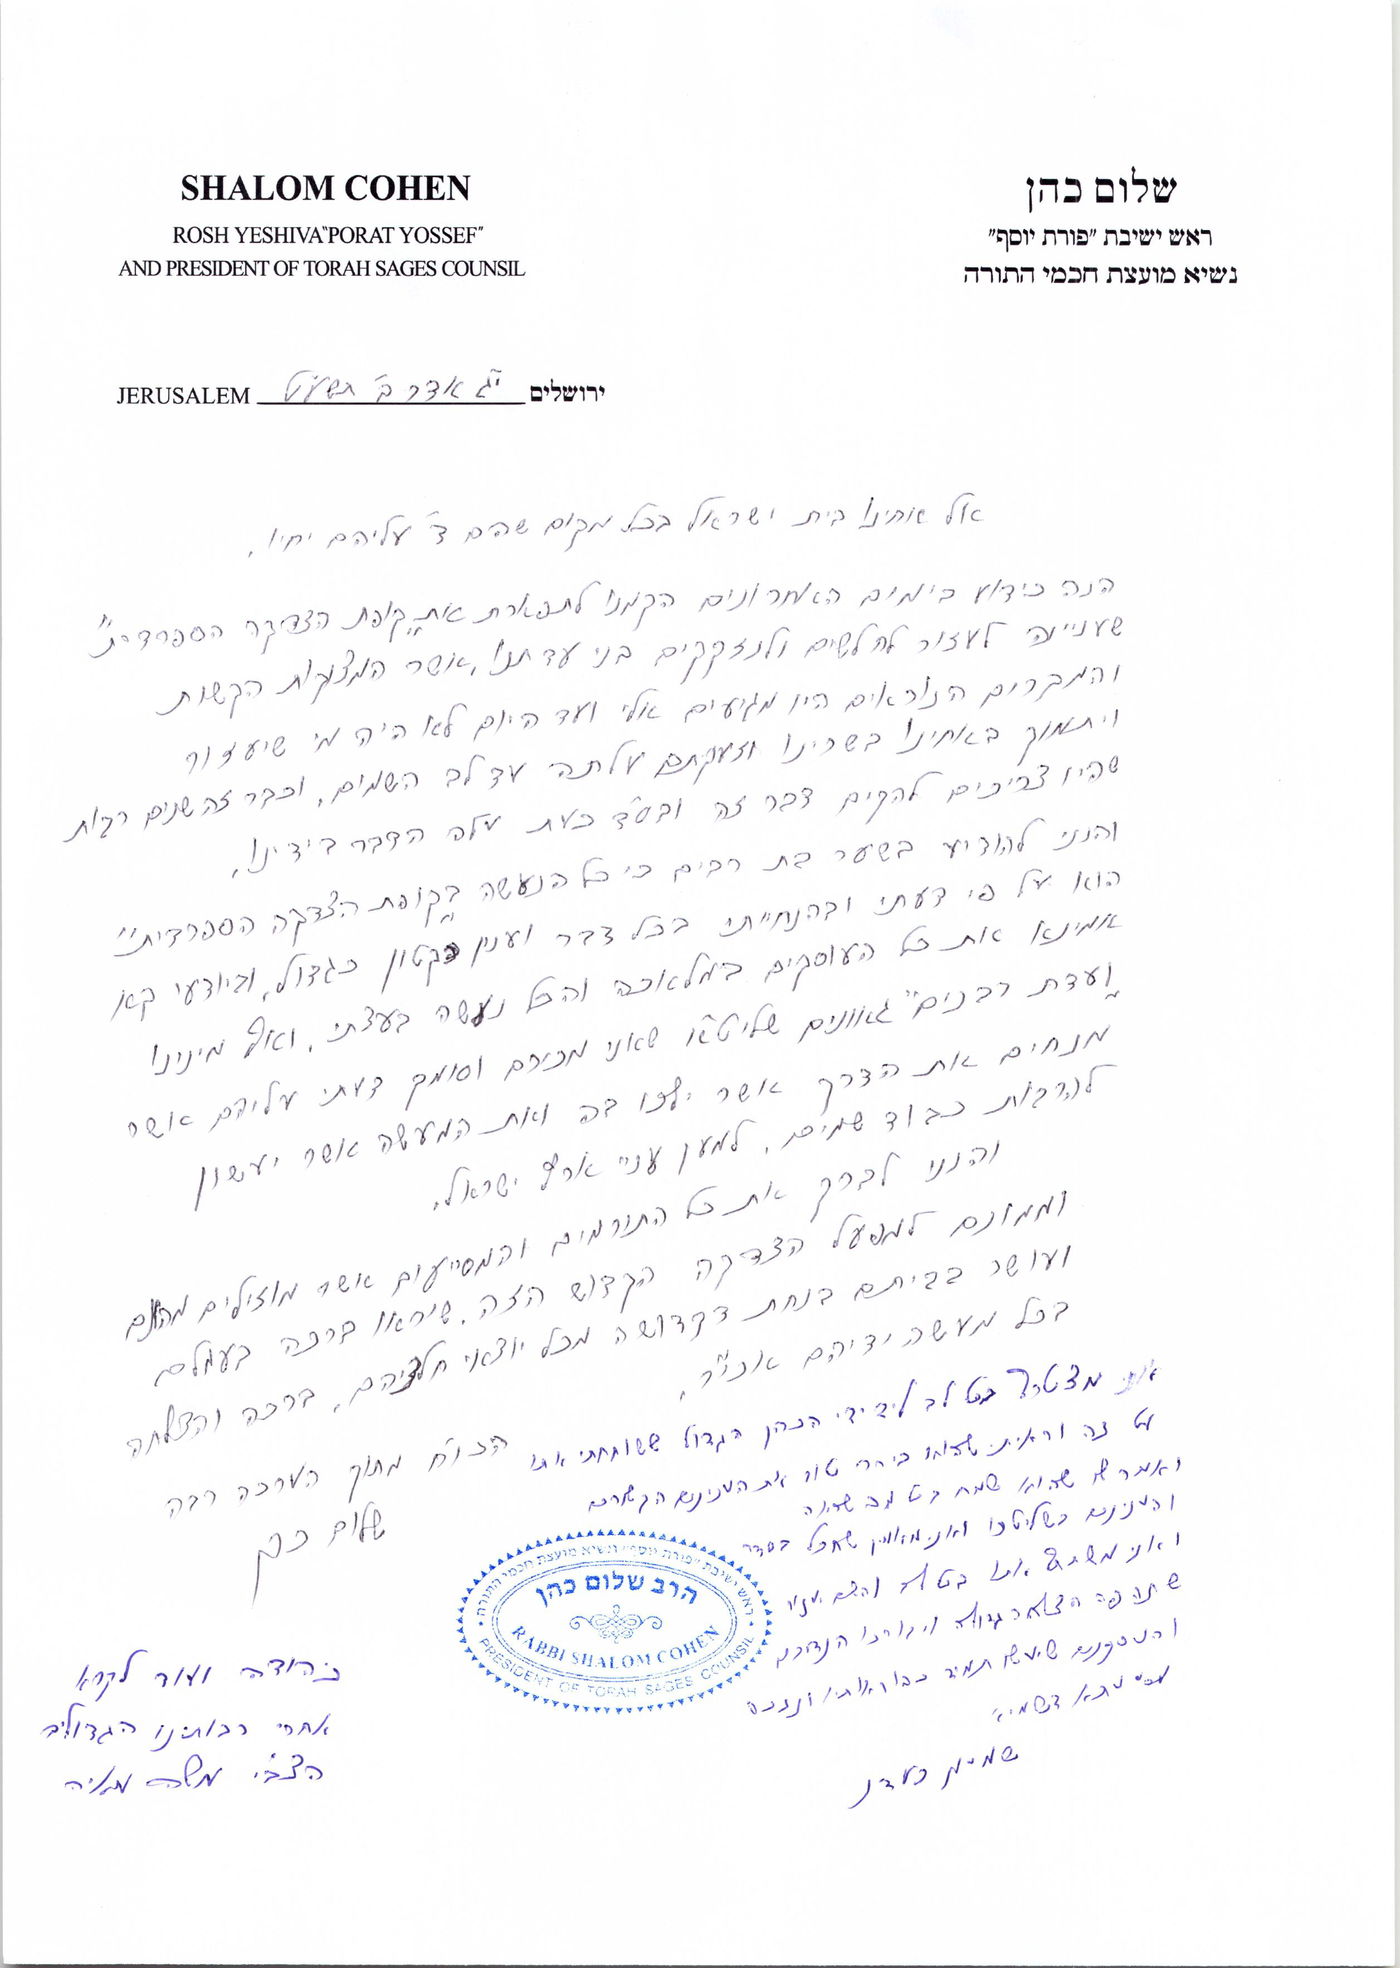 SHALOM COHEN
ROSH YESHIVA"PORAT YOSSEF"
AND PRESIDENT OF TORAH SAGES COUNSIL
שלום כהן
ראש ישיבת "פורת יוסף"
נשיא מועצת חכמי התורה
JERUSALEM י"ג אדר ב' תשע"ט ירושלים
אל אחינו בית ישראל בכל מקום שהם ד' עליהם יחיו,
הנה כידוע בימים האחרונים הקמנו לתפארת את "קופת הצדקה הספרדית"
שעניינה לעזור לחלשים ולנזקקים בני עדתנו, אשר המצוקות הקשות
והמקרים הנוראים היו מגיעים אלי ועד היום לא היה מי שיעזור
ויתמוך באחינו בשרינו וזעקתם עלתה עד לב השמים, וכבר זה שנים רבות
שהיו צריכים להקים דבר זה ובס"ד כעת עלה הדבר בידינו,
והנני להודיע בשער בת רבים כי כל הנעשה ב"קופת הצדקה הספרדית"
הוא על פי דעתי ובהנחייתי בכל דבר וענין כקטון כגדול, וביודעי קאי
אמינא את כל העוסקים במלאכה והכל נעשה בעצתי, ואף מינינו
"ועדת רבנים" גאונים שליט"א שאני מכירם וסומך דעתי עליהם אשר
מנחים את הדרך אשר ילכו בה ואת המעשה אשר יעשון
להרבות כבוד שמים, למען עניי ארץ ישראל.
והנני לברך את כל התורמים והמסייעים אשר מוזילים מהונם
וממונם למפעל הצדקה הקדוש הזה, שיראו ברכה בעמלם
ועושר בביתם בנחת דקדושה מכל יוצאי חלציהם, ברכה והצלחה
בכל מעשה ידיהם אכי"ר,
הכו"ח מתוך הערכה רבה
שלום כהן
אני מצטרף בכל לב לידידי הכהן הגדול ששוחחתי אתו
על זה וראיתי שהוא את הענינים הקשורים
ואמר לי שהוא שמח בכל מה שהיה
והענינים בשליטתו ואני מאמין שהכל בסדר
ואני משתתף אתו בכל והשם יעזור
שיהיה פה הצלחה גדולה ויבורכו הנדיבים
והעסקנים שיעשו תמיד כהוראותיו ונזכה
דשמיא
שמעון בעדני
הרב שלום כהן
ראש ישיבת "פורת יוסף" ונשיא מועצת חכמי התורה
RABBI SHALOM COHEN
PRESIDENT OF TORAH SAGES COUNSIL
כיהודה ועוד לקרא
אחרי רבותינו הגדולים
הצב"י משה מאיה